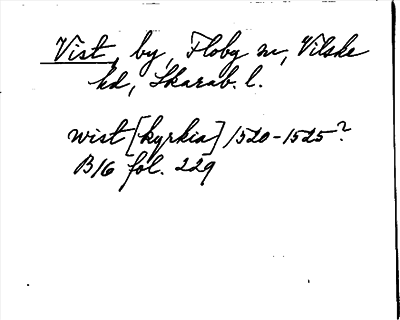 Vist, by, Floby sn, Vilske
hd, Skarab. l.
wist [kyrkia] 1520-1525?
B16 fol. 229